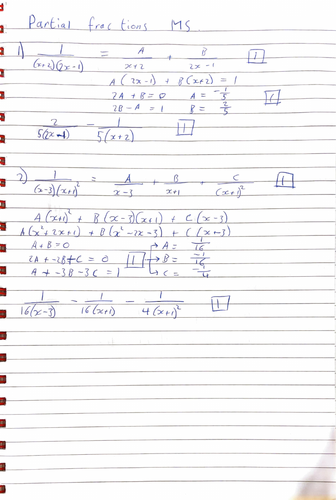 Partial fractions MS
1) 1/((x+2)(2x-1)) = A/(x+2) + B/(2x-1) [1]
A(2x-1) + B(x+2) = 1
2A + B = 0 A = -1/5
2B - A = 1 B = 2/5 [1]
2/(5(2x-1)) - 1/(5(x+2)) [1]
2) 1/((x-3)(x+1)²) = A/(x-3) + B/(x+1) + C/(x+1)² [1]
A(x+1)² + B(x-3)(x+1) + C(x-3)
A(x²+2x+1) + B(x²-2x-3) + C(x-3)
A+B=0 → A = 1/16
2A+-2B+C = 0 [1] → B = -1/16
A+-3B-3C = 1 → C = -1/4
1/(16(x-3)) - 1/(16(x+1)) - 1/(4(x+1)²) [1]